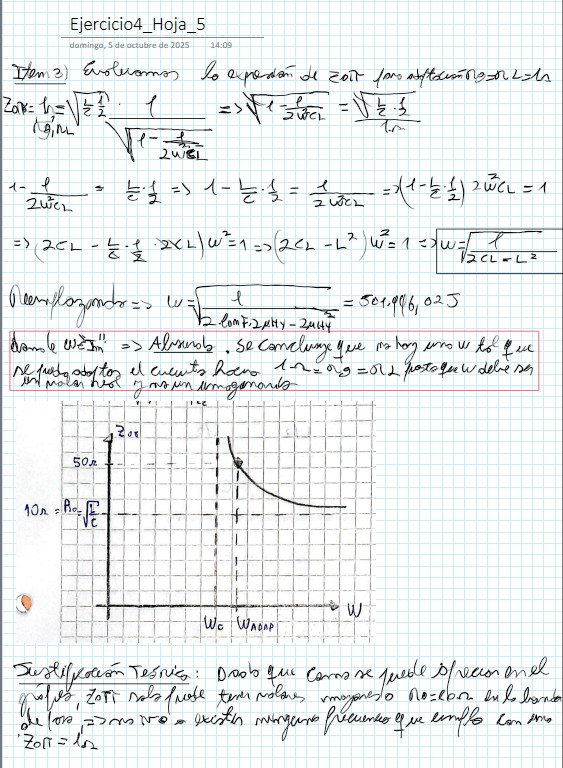 Ejercicio4_Hoja_5
domingo, 5 de octubre de 2025 14:09
Item 2) Evaluamos la expresión de Zoπ para adaptación rg=rL=1Ω
Zoπ = 1Ω = √(L/C · 1/2) · 1/√(1 - 1/(2ω²CL)) => √(1 - 1/(2ω²CL)) = √(L/C · 1/2)/1Ω
rg, rL
1 - 1/(2ω²CL) = L/C · 1/2 => 1 - L/C · 1/2 = 1/(2ω²CL) => (1 - L/C · 1/2) 2ω²CL = 1
=> (2CL - L/C · 1/2 · 2CL) ω² = 1 => (2CL - L²) ω² = 1 => ω = √(1/(2CL - L²))
Reemplazando => ω = √(1/(2·10nF·2μHy - 2μHy²)) = 501.996,02J
donde ω "Im" => Absurdo. Se concluye que no hay una ω tal que
se pueda adaptar el circuito hacia 1Ω = rg = rL puesto que ω debe ser
un valor real y no un imaginario
Zoπ
50Ω
10Ω = Ro = √(L/C)
ωc ωADAP ω
Justificación Teórica: Dado que como se puede apreciar en el
gráfico, Zoπ solo puede tener valores en la banda
de paso, => no va a existir ninguna frecuencia que cumpla con una
Zoπ = 1Ω